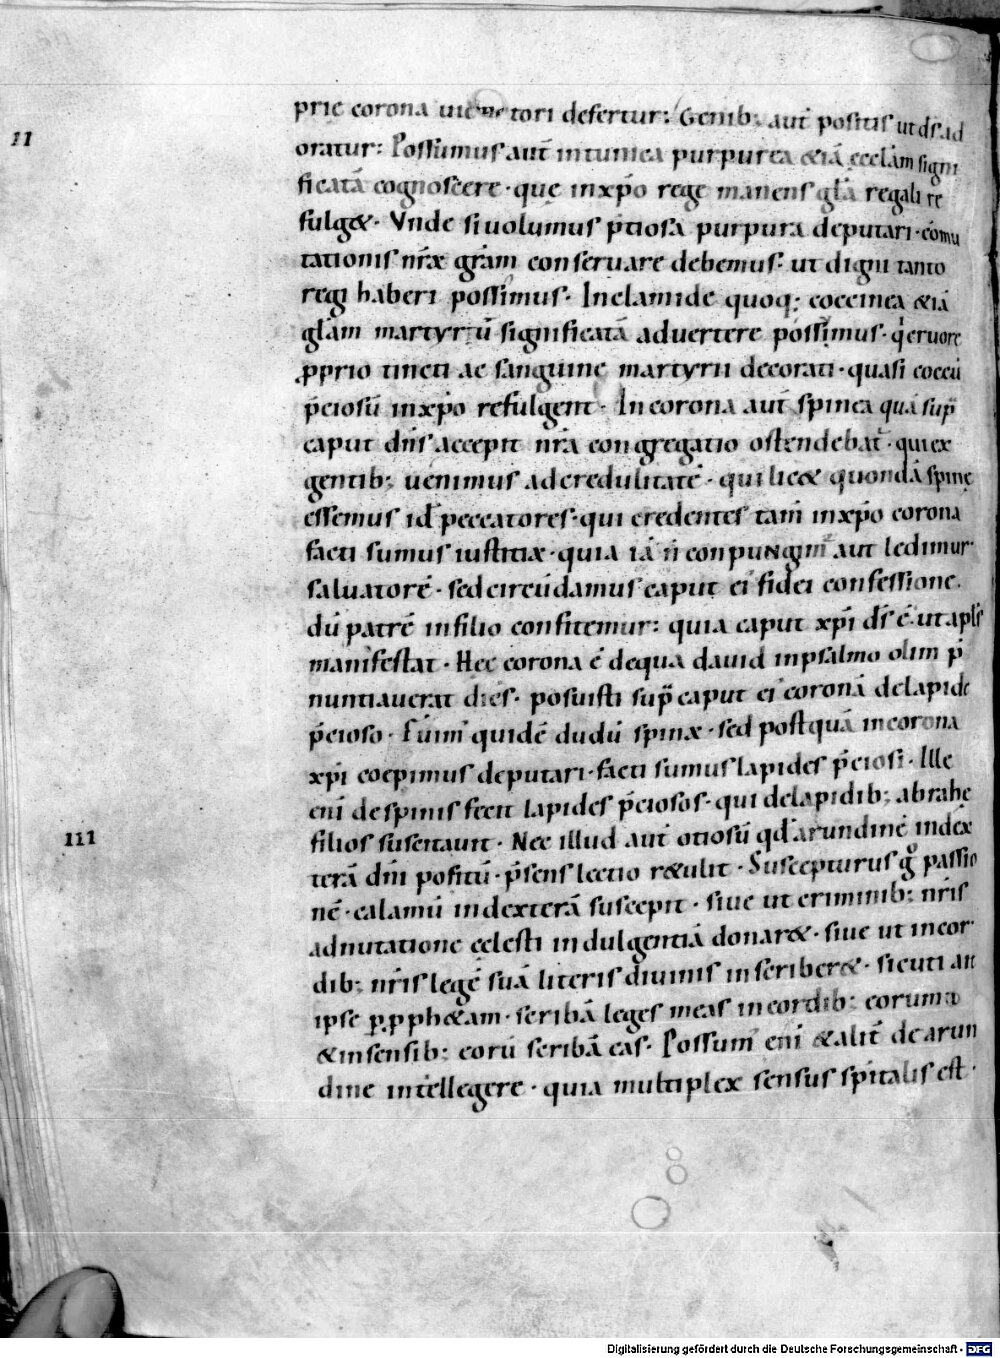 prie corona uictori defertur: Genib; aut̄ positis ut ds̄ ad
II
oratur: Possumus aut̄ in tunica purpurea &iā ęcclām signi
ficatā cognoscere · quę in xp̄o rege manens gl̄a regali re
fulg& · Vnde si uolumus p̄tiosa purpura deputari · cōmu
tationis nr̄æ gr̄am conseruare debemus · ut digni tanto
regi haberi possimus · In clamide quoq; coccinea &iā
gl̄am martyrū significatā aduertere possumus · q̄ cruore
ꝓprio tincti ac sanguine martyrii decorati · quasi coccū
p̄ciosū in xp̄o refulgent · In corona aut̄ spinea quā sup̄
caput dn̄s accepit nr̄a congregatio ostendebat̄ · qui ex
gentib; uenimus ad credulitatē · qui lic& quondā spinę
essemus id̄ peccatores · qui credentes tam̄ in xp̄o corona
facti sumus iustitiæ · quia iā n̄ conpungim̄ aut ledimur
saluatorē · sed circūdamus caput ei' fidei confessione
dū patrē in filio confitemur: quia caput xp̄i ds̄ ē · ut apl's
manifestat · Hec corona ē de qua dauid in psalmo olim p̄
nuntiauerat dices · posuisti sup̄ caput ei' coronā de lapide
p̄cioso · Fuim' quidē dudū spinæ · sed postquā in corona
xp̄i coepimus deputari · facti sumus lapides p̄ciosi · Ille
eni de spinis fecit lapides p̄ciosos · qui de lapidib; abrahę
III
filios suscitauit · Nec illud aut̄ otiosū qd̄ arundinē in dex
terā dn̄i positū · p̄sens lectio r&ulit · Suscepturus gͦ passio
nē · calamū in dexterā suscepit · siue ut criminib; nr̄is
ad nutatione cęlesti indulgentiā donar& · siue ut in cor
dib; nr̄is legē suā literis diuinis inscriber& · sicuti
ipse ꝑ ꝓph&am · scribā leges meas in cordib; eorum
& in sensib; eorū scribā eas · Possum' eni &alit̄ de arun
dine intellegere · quia multiplex sensus sp̄italis est ·
Digitalisierung gefördert durch die Deutsche Forschungsgemeinschaft - DFG